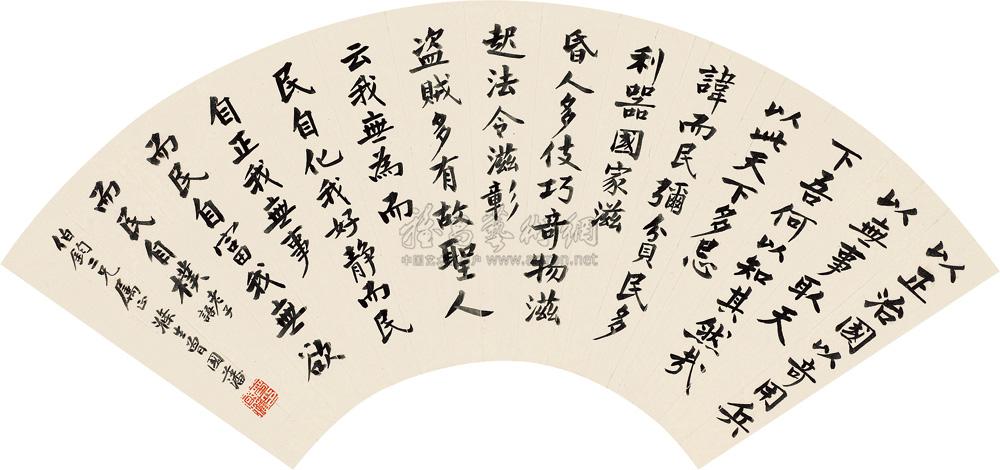 以正治國以奇用兵
以無事取天
下吾何以知其然哉
以此天下多忌
諱而民彌貧民多
利器國家滋
昏人多伎巧奇物滋
起法令滋彰
盜賊多有故聖人
云我無為而
民自化我好靜而民
自正我無事
而民自富我無欲
而民自樸
老子語
二兄屬正
滌生曾國藩
藝術網